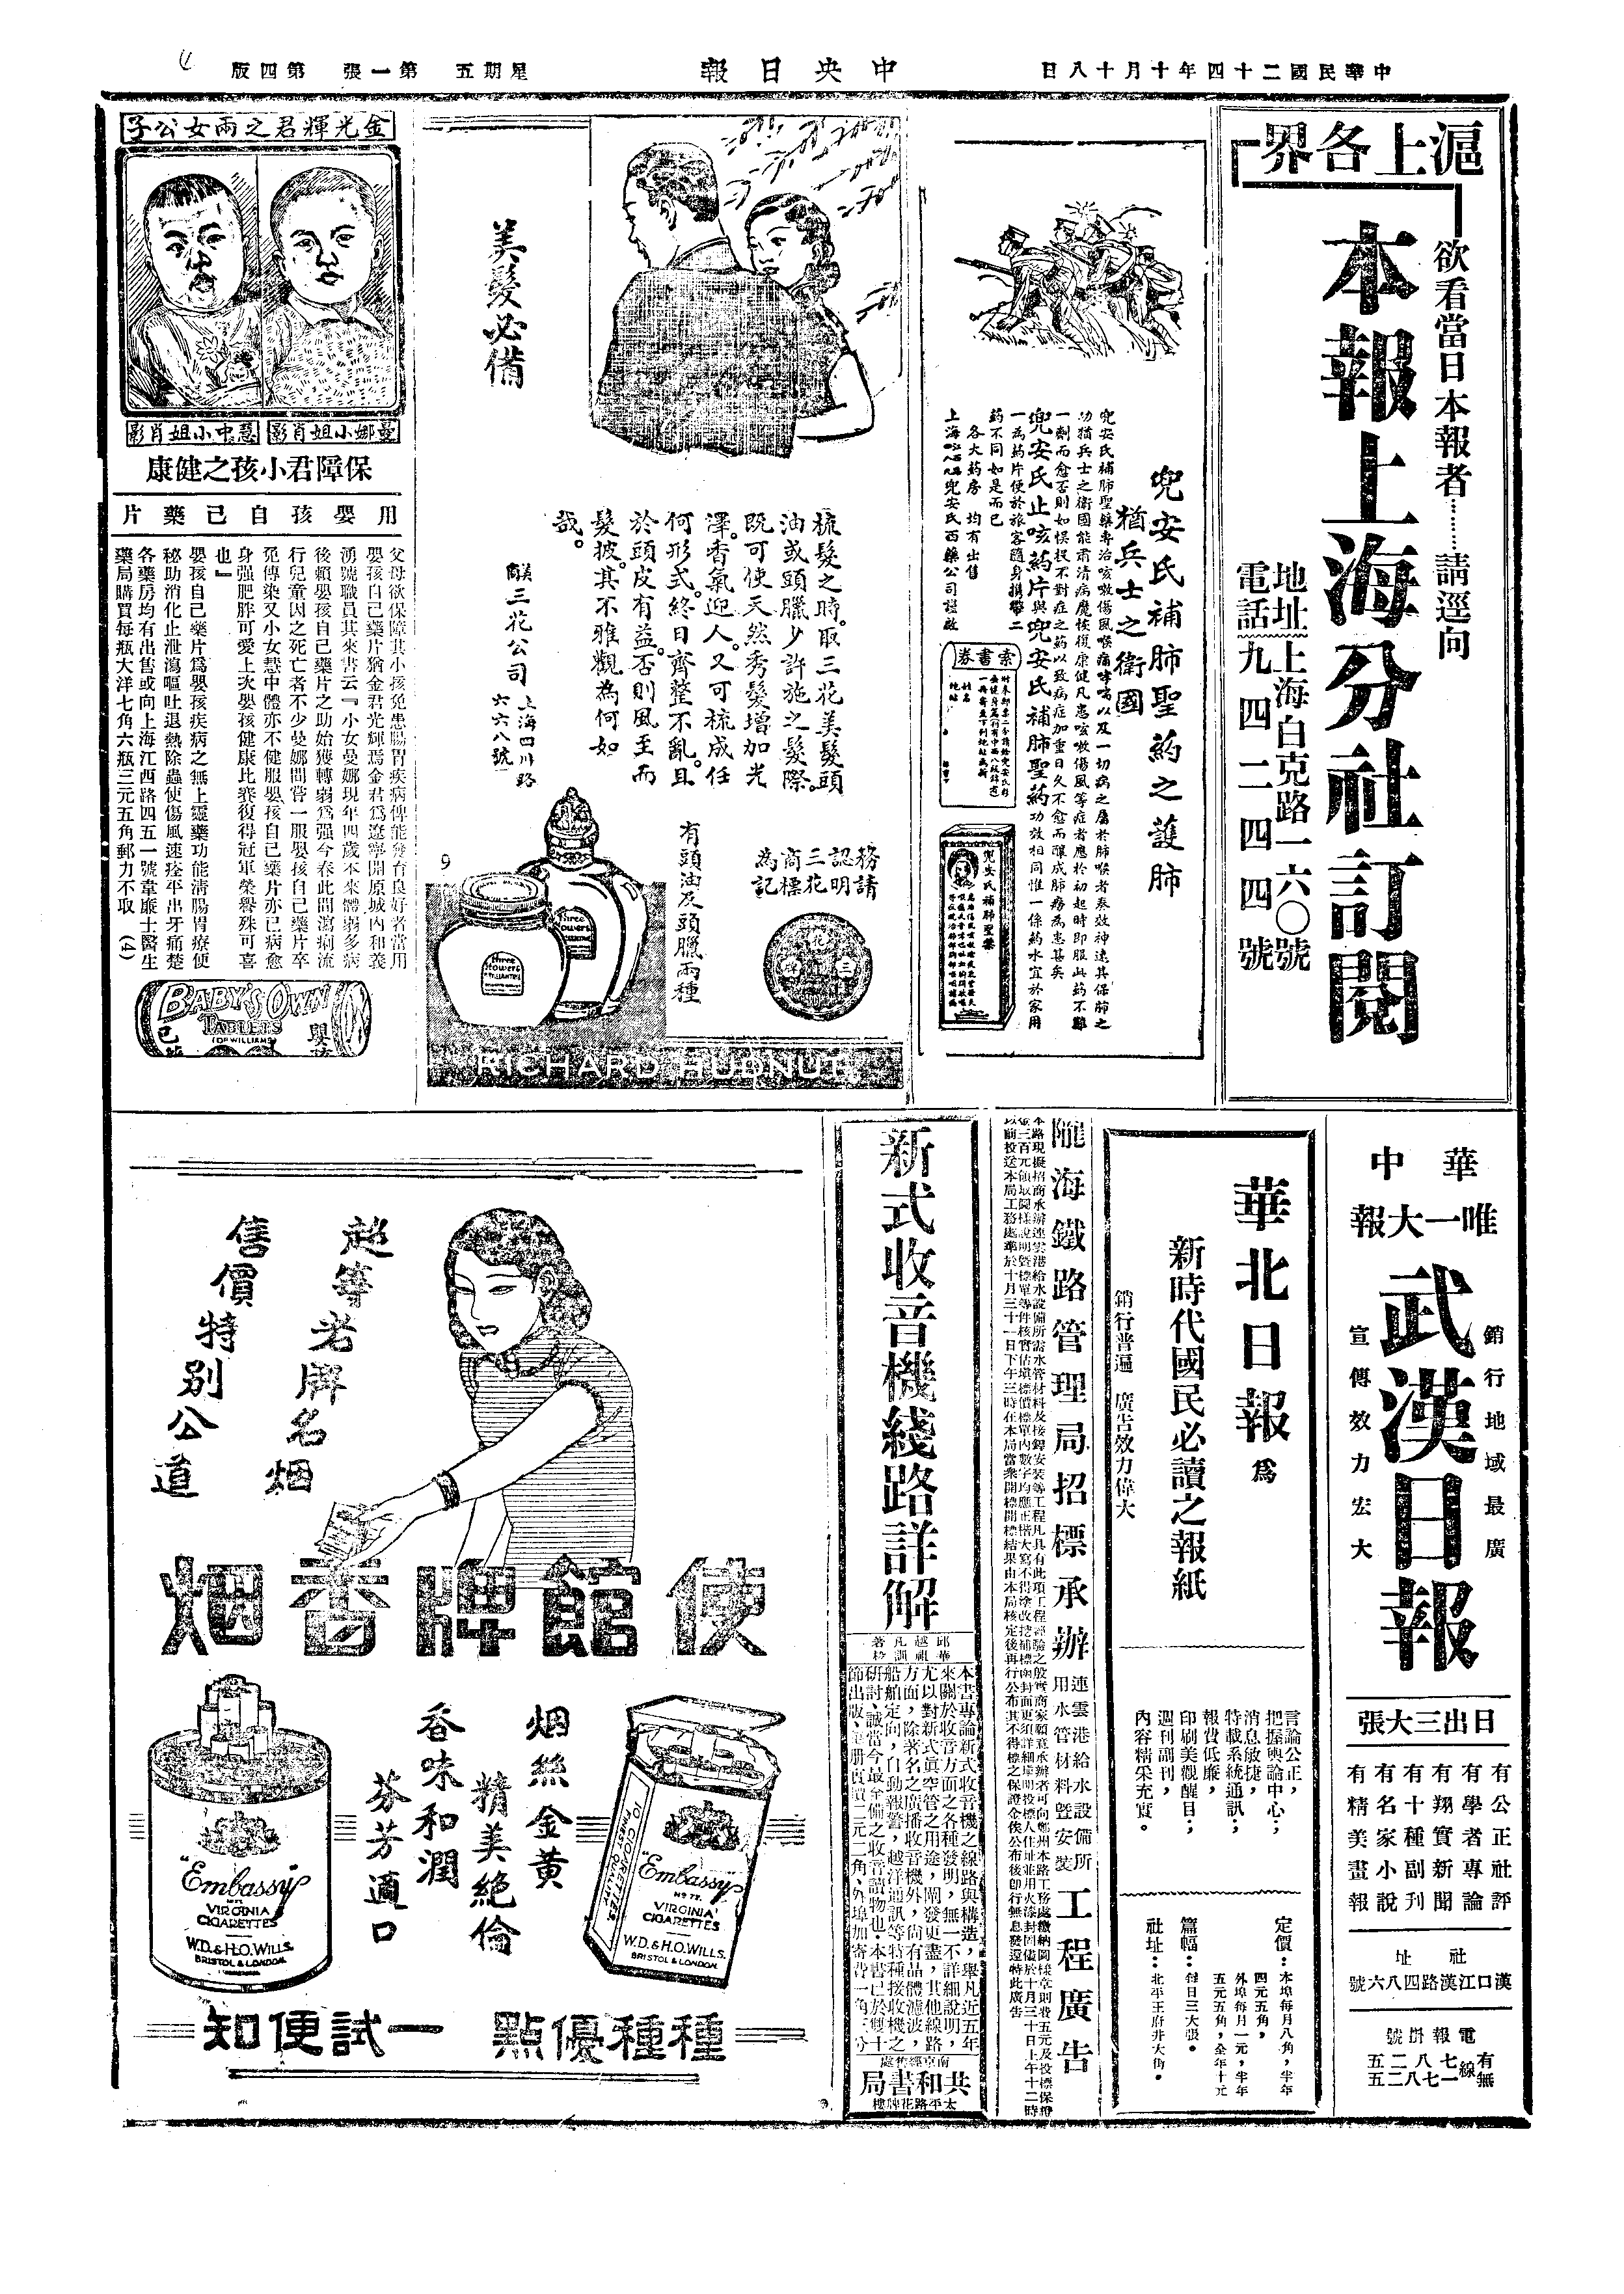 中華民國二十四年十月十八日
中央日報
星期五 第一張 第四版
滬上各界
欲看當日本報者……請逕向
本報上海分社訂閱
地址 上海白克路一六〇號
電話 九四二四四號
兜安氏補肺聖藥之護肺
猶兵士之衛國
兜安氏補肺聖藥專治咳嗽傷風喉痛哮喘以及一切病之屬於肺喉者奏效神速其保肺之
功猶兵士之衛國能肅清病魔恢復康健凡患咳嗽傷風等症者應於初起時即服此药不難
一劑而愈否則如悮投不對症之药以致病症加重日久不愈而釀成肺癆為患甚矣
兜安氏止咳药片與兜安氏補肺聖药功效相同惟一係药水宜於家用
一為药片便於旅客隨身攜帶二
药不同如是而已
各大药房 均有出售
兜安氏西藥公司謹啟
索書券
兜安氏補肺聖藥
美髮必備
梳髮之時。取三花美髮頭
油或頭臘少許施之髮際。
既可使天然秀髮增加光
澤。香氣迎人。又可梳成任
何形式。終日齊整不亂。且
於頭皮有益。否則風至而
髮披。其不雅觀為何如
哉。
美商三花公司
上海四川路
六六八號
務請
認明
三花
商標
為記
有頭油及頭臘兩種
9
Three Flowers
RICHARD HUDNUT
金光輝君之兩女公子
曼娜小姐肖影
慧中小姐肖影
保障君小孩之健康
用嬰孩自己藥片
父母欲保障其小孩免患腸胃疾病俾能發育良好者當用
嬰孩自己藥片猶金君光輝焉金君為遼寧開原城內和義
湧號職員其來書云『小女曼娜現年四歲本來體弱多病
後賴嬰孩自己藥片之助始獲轉弱為强今春此間瀉痢流
行兒童因之死亡者不少曼娜間嘗一服嬰孩自己藥片卒
免傳染又小女慧中體亦不健服嬰孩自己藥片亦已病愈
身强肥胖可愛上次嬰孩健康比賽復得冠軍榮譽殊可喜
也』
嬰孩自己藥片為嬰孩疾病之無上靈藥功能清腸胃療便
秘助消化止泄瀉嘔吐退熱除蟲使傷風速痊平出牙痛楚
各藥房均有出售或向上海江西路四五一號韋廉士醫生
藥局購買每瓶大洋七角六瓶三元五角郵力不取 (4)
BABY'S OWN
TABLETS
(DR WILLIAMS)
華中
唯一大報
武漢日報
銷行地域最廣
宣傳效力宏大
日出三大張
有公正社評
有學者專論
有翔實新聞
有十種副刊
有名家小說
有精美畫報
社址
漢口江漢路四八六號
電報掛號
有線七八二五
無線一七八二五
華北日報為
新時代國民必讀之報紙
銷行普遍 廣告效力偉大
言論公正，
把握輿論中心；
消息敏捷，
特載系統通訊；
報費低廉，
印刷美觀醒目；
週刊副刊，
內容精采充實。
定價：本埠每月八角，半年
四元五角，
外埠每月一元，半年
五元五角，全年十元
篇幅：每日三大張。
社址：北平王府井大街。
隴海鐵路管理局招標承辦連雲港給水設備所用水管材料暨安裝工程廣告
本路現擬招商承辦連雲港給水設備所需水管材料及接鋅安裝等工程凡具有此項工程經驗之殷實商家願意承辦者可向鄭州本路工務處繳納圖樣章則費五元及投標保證
金三百元領取圖樣說明暨標單等件核實估填標價標單內數字均應正楷大寫不得塗改挖補標函封面更須詳細填明投標人住址並用火漆封固儘於十月三十日上午十二時
以前投送本局工務處準於十月三十一日下午三時在本局當衆開標開標結果由本局核定後再行公布其不得標之保證金俟公布後即行無息發還特此廣告
新式收音機綫路詳解
邱越凡著
華祖訓校
本書專論新式收音機之線路與構造，舉凡近五年
來關於收音方面之各種發明，無一不詳細說明，
尤以對新式真空管之用途，闡發更盡，其他線路
方面，除著名之廣播收音機外，尚有品體濾波，
船舶定向，自動報警，越洋通訊等特種接收機之
研討，誠當今最完備之收音讀物也。本書已於雙十
節出版，每冊實價二元二角，外埠加寄費一角三分
南京經售處
共和書局
太平路花牌樓
超等老牌名烟
售價特別公道
使館牌香烟
烟絲金黃
精美絕倫
香味和潤
芬芳適口
"Embassy"
Nº 77.
VIRGINIA
CIGARETTES
W.D. & H.O. WILLS.
BRISTOL & LONDON
10 CIGARETTES
FINEST QUALITY
"Embassy"
Nº 77.
VIRGINIA
CIGARETTES
W.D. & H.O. WILLS.
BRISTOL & LONDON
種種優點 一試便知